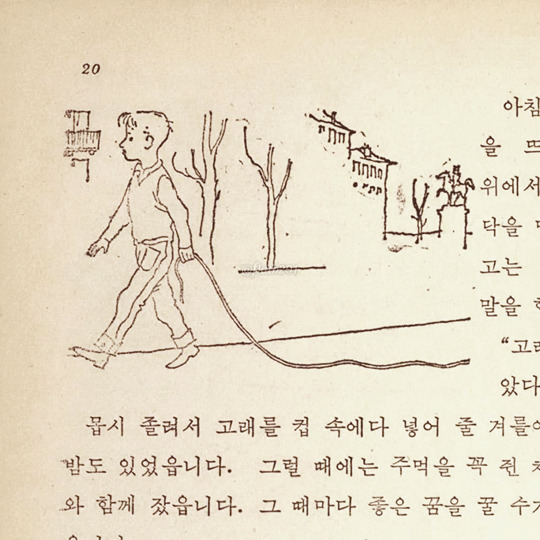 20
아침
을
위에서
닥을
고는
말을
“고래
았다
몹시 졸려서 고래를 컵 속에다 넣어 줄 겨를이
밤도 있었읍니다. 그럴 때에는 주먹을 꼭 쥔 채
와 함께 잤읍니다. 그 때마다 좋은 꿈을 꿀 수가